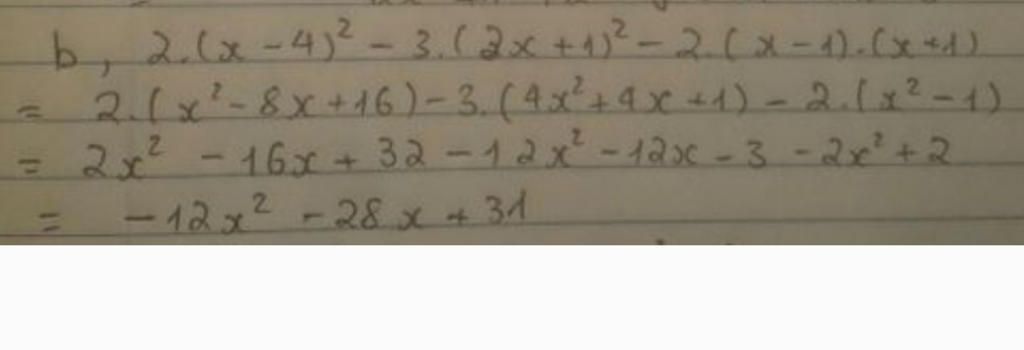 b, 2.(x-4)² - 3.(2x+1)² - 2.(x-1).(x+1)
= 2.(x²-8x+16) - 3.(4x²+4x+1) - 2.(x²-1)
= 2x² - 16x + 32 - 12x² - 12x - 3 - 2x² + 2
= -12x² - 28x + 31